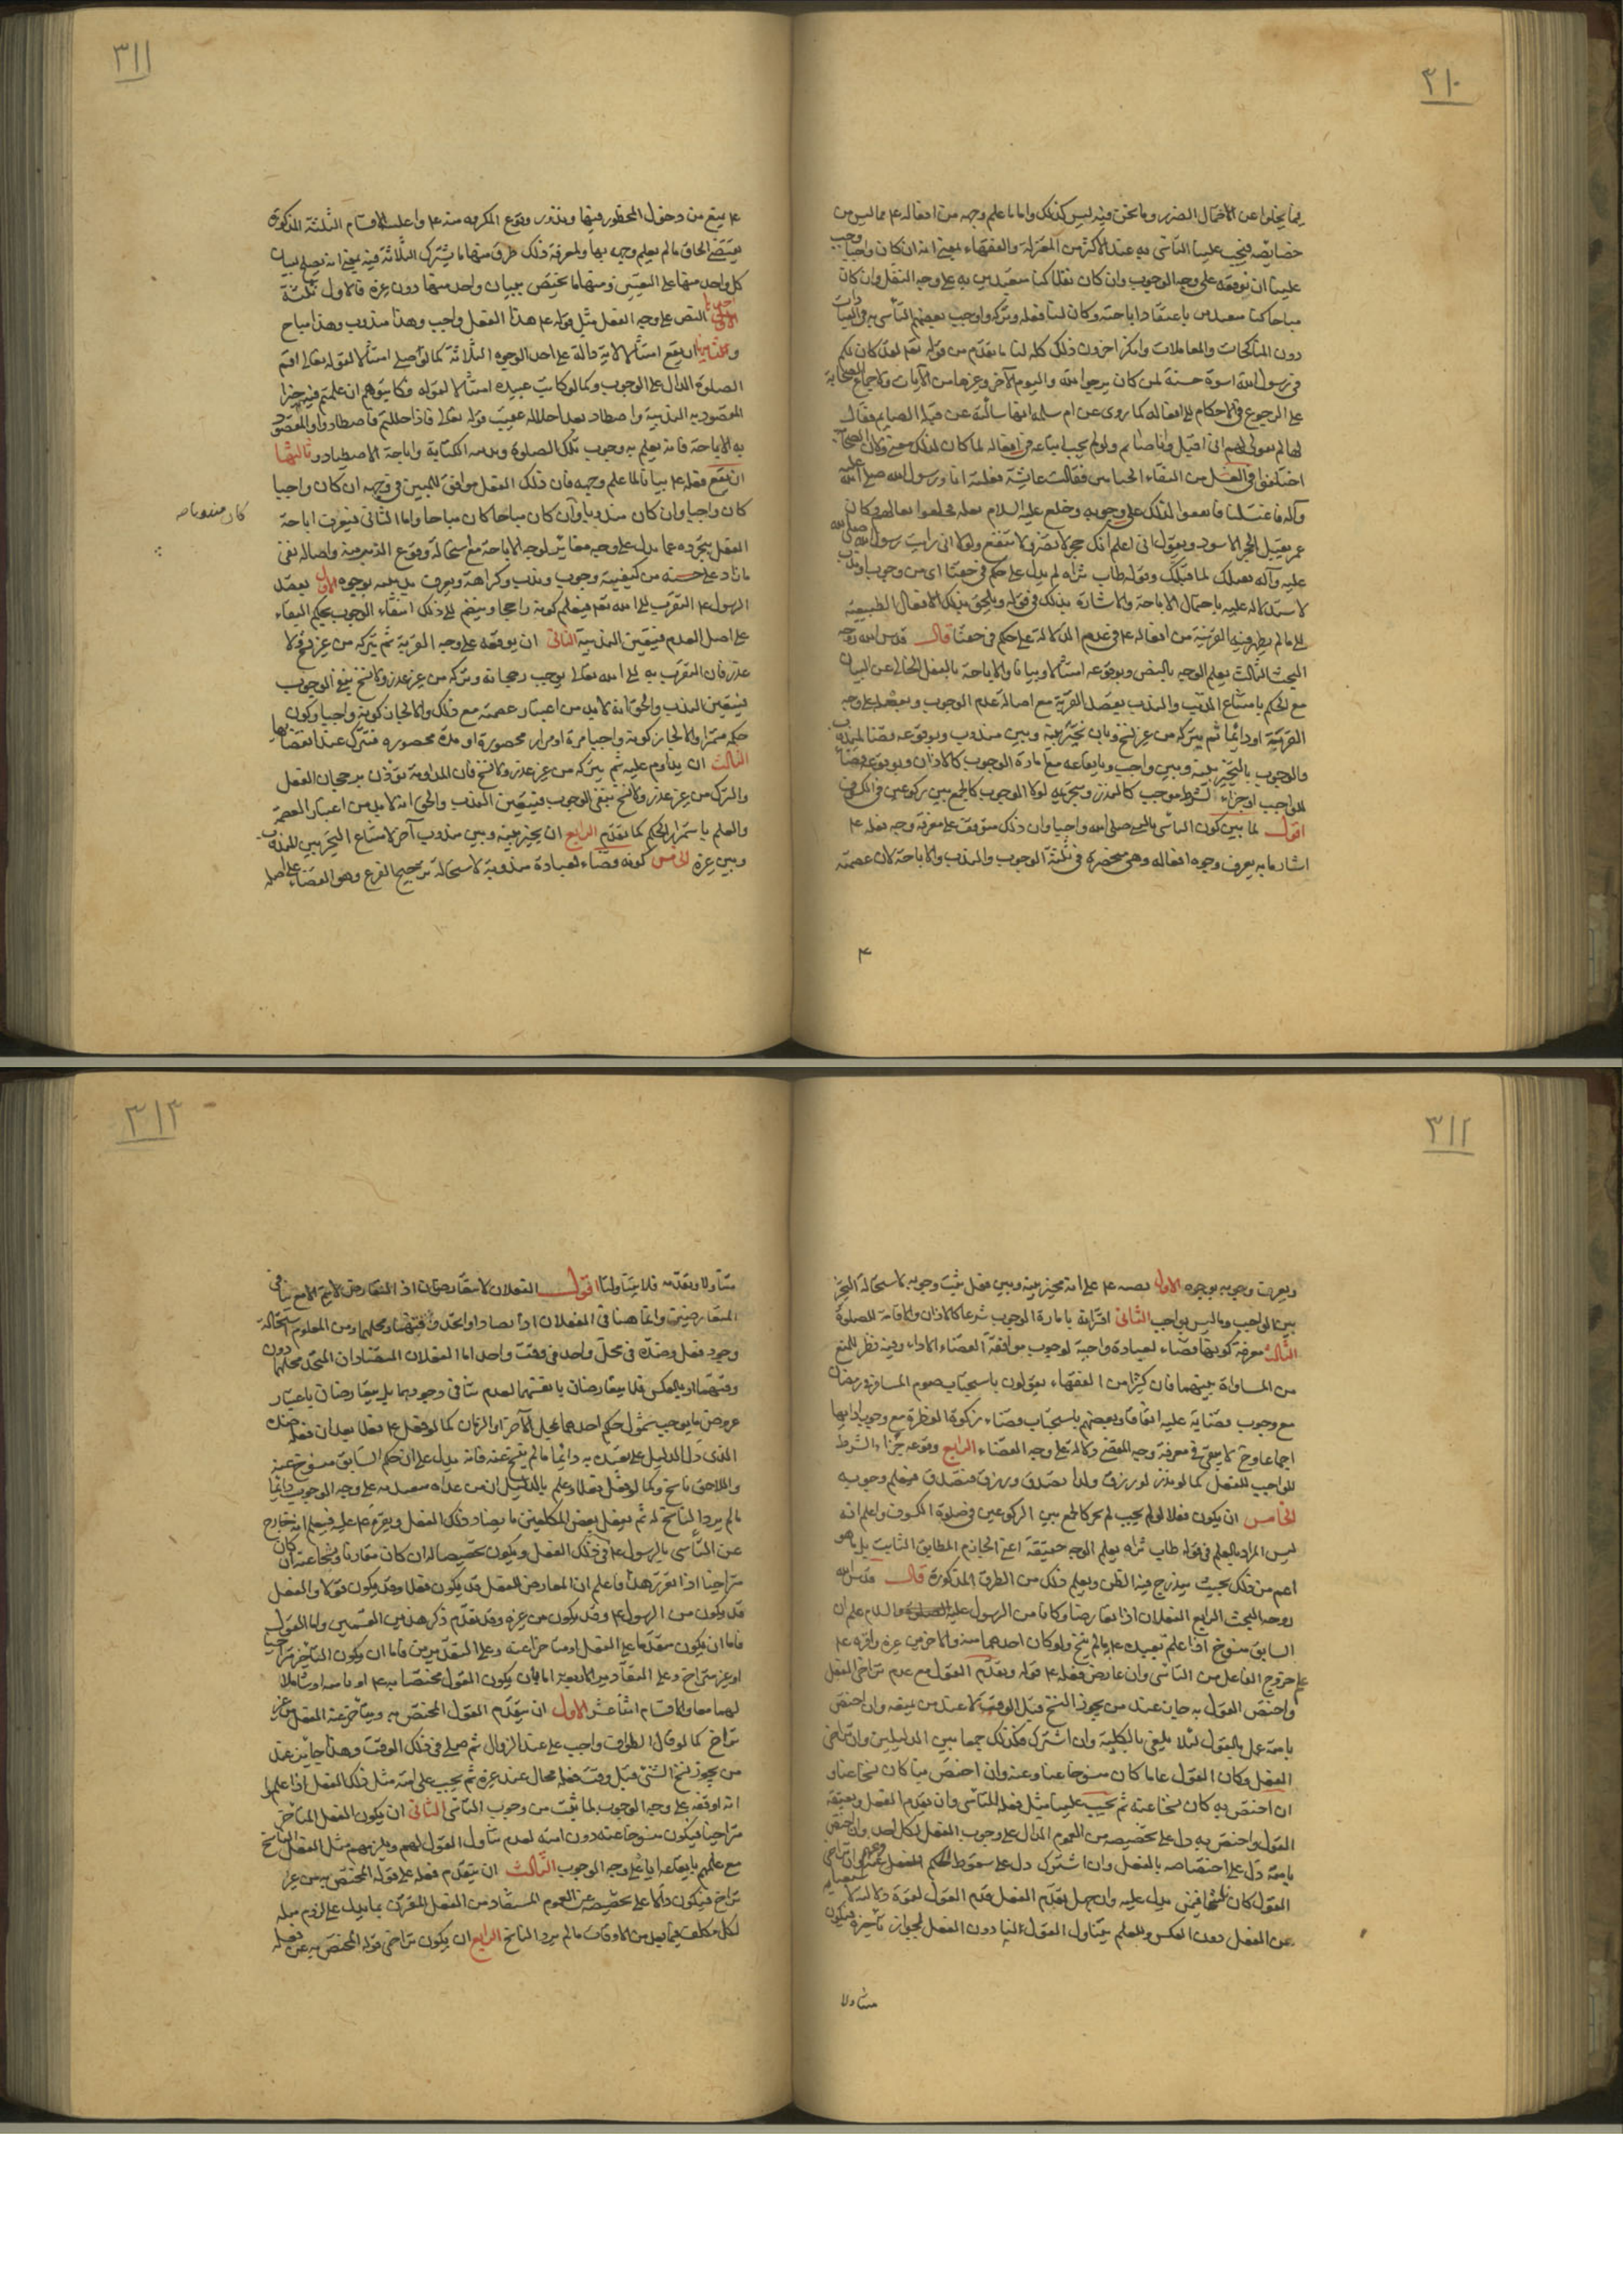 ٣١٠
فيما يخلوا عن الاحتمال الضرر وما نحن فيه ليس كذلك واما ما علم وجهه من افعاله ء مما ليس من
خصايصه فيجب علينا التأسي به عند الاكثر من المعتزلة والفقهاء بمعنى انه ان كان واجبا وجب
علينا ان نوقعه على وجه الوجوب وان كان نفلا كنا متعبدين به على وجه النفل وان كان
مباحا كنا متعبدين باعتقاد اباحته وكان لنا فعله وتركه واوجب بعضهم التأسي به في العبادات
دون المناكحات والمعاملات وانكر اخرون ذلك كله لنا ما تقدم من قوله تعه لقد كان لكم
في رسول الله اسوة حسنة لمن كان يرجوا الله واليوم الآخر وغيرها من الآيات ولاجماع الصحابة
على الرجوع في الاحكام الى افعاله كما روى عن ام سلمه انها سالته عن قبلة الصايم فقال
لها لم تقولى لهم انى اقبل وانا صائم ولو لم يجب اتباعه في افعاله لما كان لذلك معنى وكان الصحابة
اختلفوا في الغسل من التقاء الختانين فقالت عائشة فعلته انا ورسول الله صلى الله عليه
وآله فاغتسلنا
عمر يقبل الحجر الاسود ويقول انى اعلم انك حجر لا تضر ولا تنفع ولولا انى رايت رسول الله صلى الله
عليه وآله يقبلك لما قبلتك وقوله طاب ثراه لم يدل على حكم في حقنا اى من وجوب او ندب
لا ستدلاله عليه باحتمال الاباحة والاشارة بذلك في قوله ويلحق بذلك الافعال الطبيعية
الى ما لم يظهر فيه القربة من افعاله ء في عدم الدلالة على حكم في حقنا قال قدس الله روحه
البحث الثالث يعلم الوجه بالنص وبوقوعه امتثالا وبيانا والاباحة بالفعل الخالى عن البيان
مع الحكم بامتناع الذنب والندب بقصد القربة مع اصالة عدم الوجوب وبفعله على وجه
القربة او دائما ثم يتركه من غير نسخ وبان يخير بينه وبين مندوب وبوقوعه قضاء لمندوب
والوجوب بالتخيير بينه وبين واجب وبايقاعه مع امارة الوجوب كالاذان وبوقوعه قضاء
لواجب او جزاء لشرط موجب كالنذر وبتحريمه لولا الوجوب كالجمع بين ركوعين في الكسوف
اقول لما بين كون التأسي بالنبي صلى الله واجبا وان ذلك متوقف على معرفة وجه فعله ء
اشار ما به يعرف وجوه افعاله وهى منحصرة في ثلثة الوجوب والندب والاباحة لان عصمته
٣١١
ء يمنع من دخول المحظور فيها ويندر وقوع المكروه منه ء واغلب الاقسام الثلثة المذكورة
يقتضى الحاق ما لم يعلم وجهه بها ولمعرفة ذلك طرق منها ما يشترك الثلاثة فيه بمعنى انه يصلح لبيان
كل واحد منها على التعيين ومنها ما يختص ببيان واحد منها دون غيره فالاول ثلثة
النص على وجه الفعل مثل قوله ء هذا الفعل واجب وهذا مندوب وهذا مباح
وثانيها ان يقع امتثالا لاية دالة على احد الوجوه الثلاثة كما لو صلى امتثالا لقوله تعالى اقم
الصلوة الدال على الوجوب وكما لو كاتب عبيده امتثالا لقوله فكاتبوهم ان علمتم فيهم خيرا
المقصود به الندبية واصطاد بعد احلاله عقيب قوله تعالى فاذا حللتم فاصطادوا والمقصود
به الاباحة فانه يعلم به وجوب تلك الصلوة وندبيه الكتابة واباحة الاصطياد وثالثها
ان يقع فعله ء بيانا لما علم وجهه فان ذلك الفعل موافق للمبين في وجهه ان كان واجبا
كان واجبا وان كان مندوبا وان كان مباحا كان مباحا واما الثانى فيعرف اباحة
كان مندوبا صح
الفعل بتجرده عما يدل على وجه مغاير لوجه الاباحة مع استحالة وقوع الذنب منه واصالة نفى
ما زاد على حسنه من كيفية وجوب وندب وكراهة ويعرف ندبيته بوجوه الاول بقصد
الرسول ء التقرب الى الله تعه فيعلم كونه راجحا وينضم الى ذلك انتفاء الوجوب بحكم البقاء
على اصل العدم فيتعين الندبية الثانى ان يوقعه على وجه القربة ثم يتركه من غير نسخ ولا
عذر فان التقرب به الى الله تعالى يوجب رجحانه وتركه من غير عذر ولا نسخ ينفى الوجوب
فيتعين الندب والحق انه لابد من اعتبار عصمته مع ذلك والا لجاز كونه واجبا وكون
حكمه مستمرا والا لجاز كونه واجبا مرة او مرار محصورة او مدة محصوره فترك عند انقضائها
الثالث ان يداوم عليه ثم يتركه من غير عذر ولا نسخ فان المداومة تؤذن برجحان الفعل
والترك من غير عذر ولا نسخ ينفى الوجوب فيتعين الندب والحق انه لابد من اعتبار العصمة
والعلم باستمرار الحكم كما تقدم الرابع ان يخير بينه وبين مندوب آخر لامتناع التخيير بين الندب
وبين غيره الخامس كونه قضاء لعبادة مندوبة لاستحالة ترجيح الفرع وهو القضاء على اصله
٣١٢
ويعرف وجوبه بوجوه الاول نصه ء على انه مخير بينه وبين فعل ثبت وجوبه لاستحالة التخيير
بين الواجب وما ليس بواجب الثانى اقترانه بامارة الوجوب شرعا كالاذان والاقامة للصلوة
الثالث معرفة كونها قضاء لعبادة واجبة لوجوب موافقة القضاء الاداء وفيه نظر للمنع
من المساواة بينهما فان كثيرا من الفقهاء يقولون باستحباب صوم المسافر في رمضان
مع وجوب قضايه عليه اتفاقا وبعضهم باستحباب قضاء زكوة الفطرة مع وجوب ادائها
اجماعا وح لا يبقى في معرفة وجه المقضى دلالة على وجه القضاء الرابع وقوعه جزاء الشرط
الواجب للفعل كما لو نذر لو رزق ولدا تصدق ورزق فتصدق فيعلم وجوبه
الخامس ان يكون فعلا لو لم يجب لم يجز كالجمع بين الركوعين في صلوة الكسوف واعلم انه
ليس المراد بالعلم في قوله طاب ثراه يعلم الوجه حقيقة اعنى الجازم المطابق الثابت بل ما هو
اعم من ذلك بحيث يندرج فيه الظن ويعلم ذلك من الطرق المذكورة قال قدس الله
روحه البحث الرابع الفعلان اذا تعارضا وكانا من الرسول عليه السلام علم ان
السابق منسوخ اذا علم تعبده ء به ما لم ينسخ ولو كان احدهما منه والاخر من غيره واقره ء
على خروج الفاعل من التأسي وان عارض فعله ء قوله وتقدم القول مع عدم تراخى الفعل
واختص القول به جاز عند من يجوز النسخ قبل الوقت لا عند من يمنعه وان اختص
بامته عمل بالقول لئلا يلغى بالكلية وان اشترك فكذلك جمعا بين الدليلين وان تراخى
الفعل وكان القول عاما كان منسوخا عنا وعنه وان اختص بنا كان نسخا عنا و
ان اختص به كان نسخا عنه ثم يجب علينا مثل فعله للتأسي وان تقدم الفعل وتعقبه
القول واختص به دل على تخصيصه من العموم الدال على وجوب الفعل لكل احد وان اختص
بامته دل على اختصاصه بالفعل وان اشترك دل على سقوط حكم الفعل عنه وعنهم وان تراخى
القول كان ناسخا فيمن يدل عليه وان جهل تقدم الفعل قدم القول لقوة دلالته لاستغنائه
عن الفعل دون العكس وللعلم بتناول القول الينا دون الفعل لجواز تأخره فيكون
متناولا
٣١٣
متناولا وتقدمه فلا يتناولنا اقول الفعلان لا يتعارضان اذ التعارض لا يتم الا مع تنافى
المتعارضين وانما هنا في الفعلان اذا تضادا واتحد وقتهما ومحلهما ومن المعلوم استحالة
وجود فعل وضده في محل واحد في وقت واحد اما الفعلان المتضادان المتحد محلهما دون
وقتهما او بالعكس فلا يتعارضان بانفسهما لعدم تنافى وجودهما بل يتعارضان باعتبار
عروض ما يوجب شمول حكم احدهما لمحل الآخر او الزمان كما لو فعل ء فعلا بعد ان فعل ضده
الذى دل الدليل على تعبده به دائما ما لم ينسخ عنه فانه يدل على ان حكم السابق منسوخ عنه
واللاحق ناسخ وكما لو فعل فعلا وعلم بالدليل ان من عداه متعبد به على وجه الوجوب دائما
ما لم يرد الناسخ له ثم يفعل بعض المكلفين ما يضاد ذلك الفعل ويقره ء عليه فيعلم انه خارج
عن التأسي بالرسول ء في ذلك الفعل ويكون تخصيصا له ان كان مقارنا ونسخا عنه ان كان
متراخيا اذا تقرر هذا فاعلم ان المعارض للفعل قد يكون فعلا وقد يكون قولا والفعل
قد يكون من الرسول ء وقد يكون من غيره وقد تقدم ذكر هذين القسمين واما القول
فاما ان يكون متقدما على الفعل او متاخرا عنه وعلى التقديرين فاما ان يكون المتأخر متراخيا
او غير متراخ وعلى التقادير الاربعة اما ان يكون القول مختصا به ء او بامته او شاملا
لهما معا والاقسام اثنا عشر الاول ان يتقدم القول المختص به ويتأخر عنه الفعل من غير
تراخ كما لو قال الطواف واجب على عند الزوال ثم صلى في ذلك الوقت وهذا جائز عند
من يجوز نسخ الشئ قبل وقت فعله محال عند غيره ثم يجب على امته مثل ذلك الفعل اذا علموا
انه اوقعه على وجه الوجوب لما ثبت من وجوب التأسي الثانى ان يكون الفعل المتأخر
متراخيا فيكون منسوخا عنه دون امته لعدم تناول القول لهم ويلزمهم مثل الفعل الناسخ
مع علمهم بايقاعه اياه على وجه الوجوب الثالث ان يتقدم فعله على قوله المختص به من غير
تراخ فيكون دالا على تخصيصه عن العموم المستفاد من الفعل المقترن بما يدل على لزوم مثله
لكل مكلف فيما بعد من الاوقات ما لم يرد الناسخ الرابع ان يكون تراخى قوله المختص به عن فعله